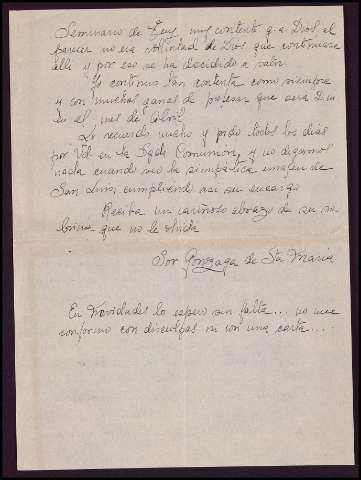 Seminario de Tuy, muy contento g. a Dios, al
parecer no era voluntad de Dios que continuase
alli y por eso se ha decidido a salir
Yo continuo tan contenta como siempre
y con muchas ganas de profesar que será D.m.
en el mes de Abril
Le recuerdo mucho y pido todos los dias
por Vd en la Sgda Comunión, y no digamos
nada cuando veo la simpatica imagen de
San Luis, cumpliendo asi su encargo
Reciba un cariñoso abrazo de su so-
brina que no le olvida
Sor Gonzaga de Sta Maria
En Navidades lo espero sin falta... no me
conformo con disculpas ni con una carta....